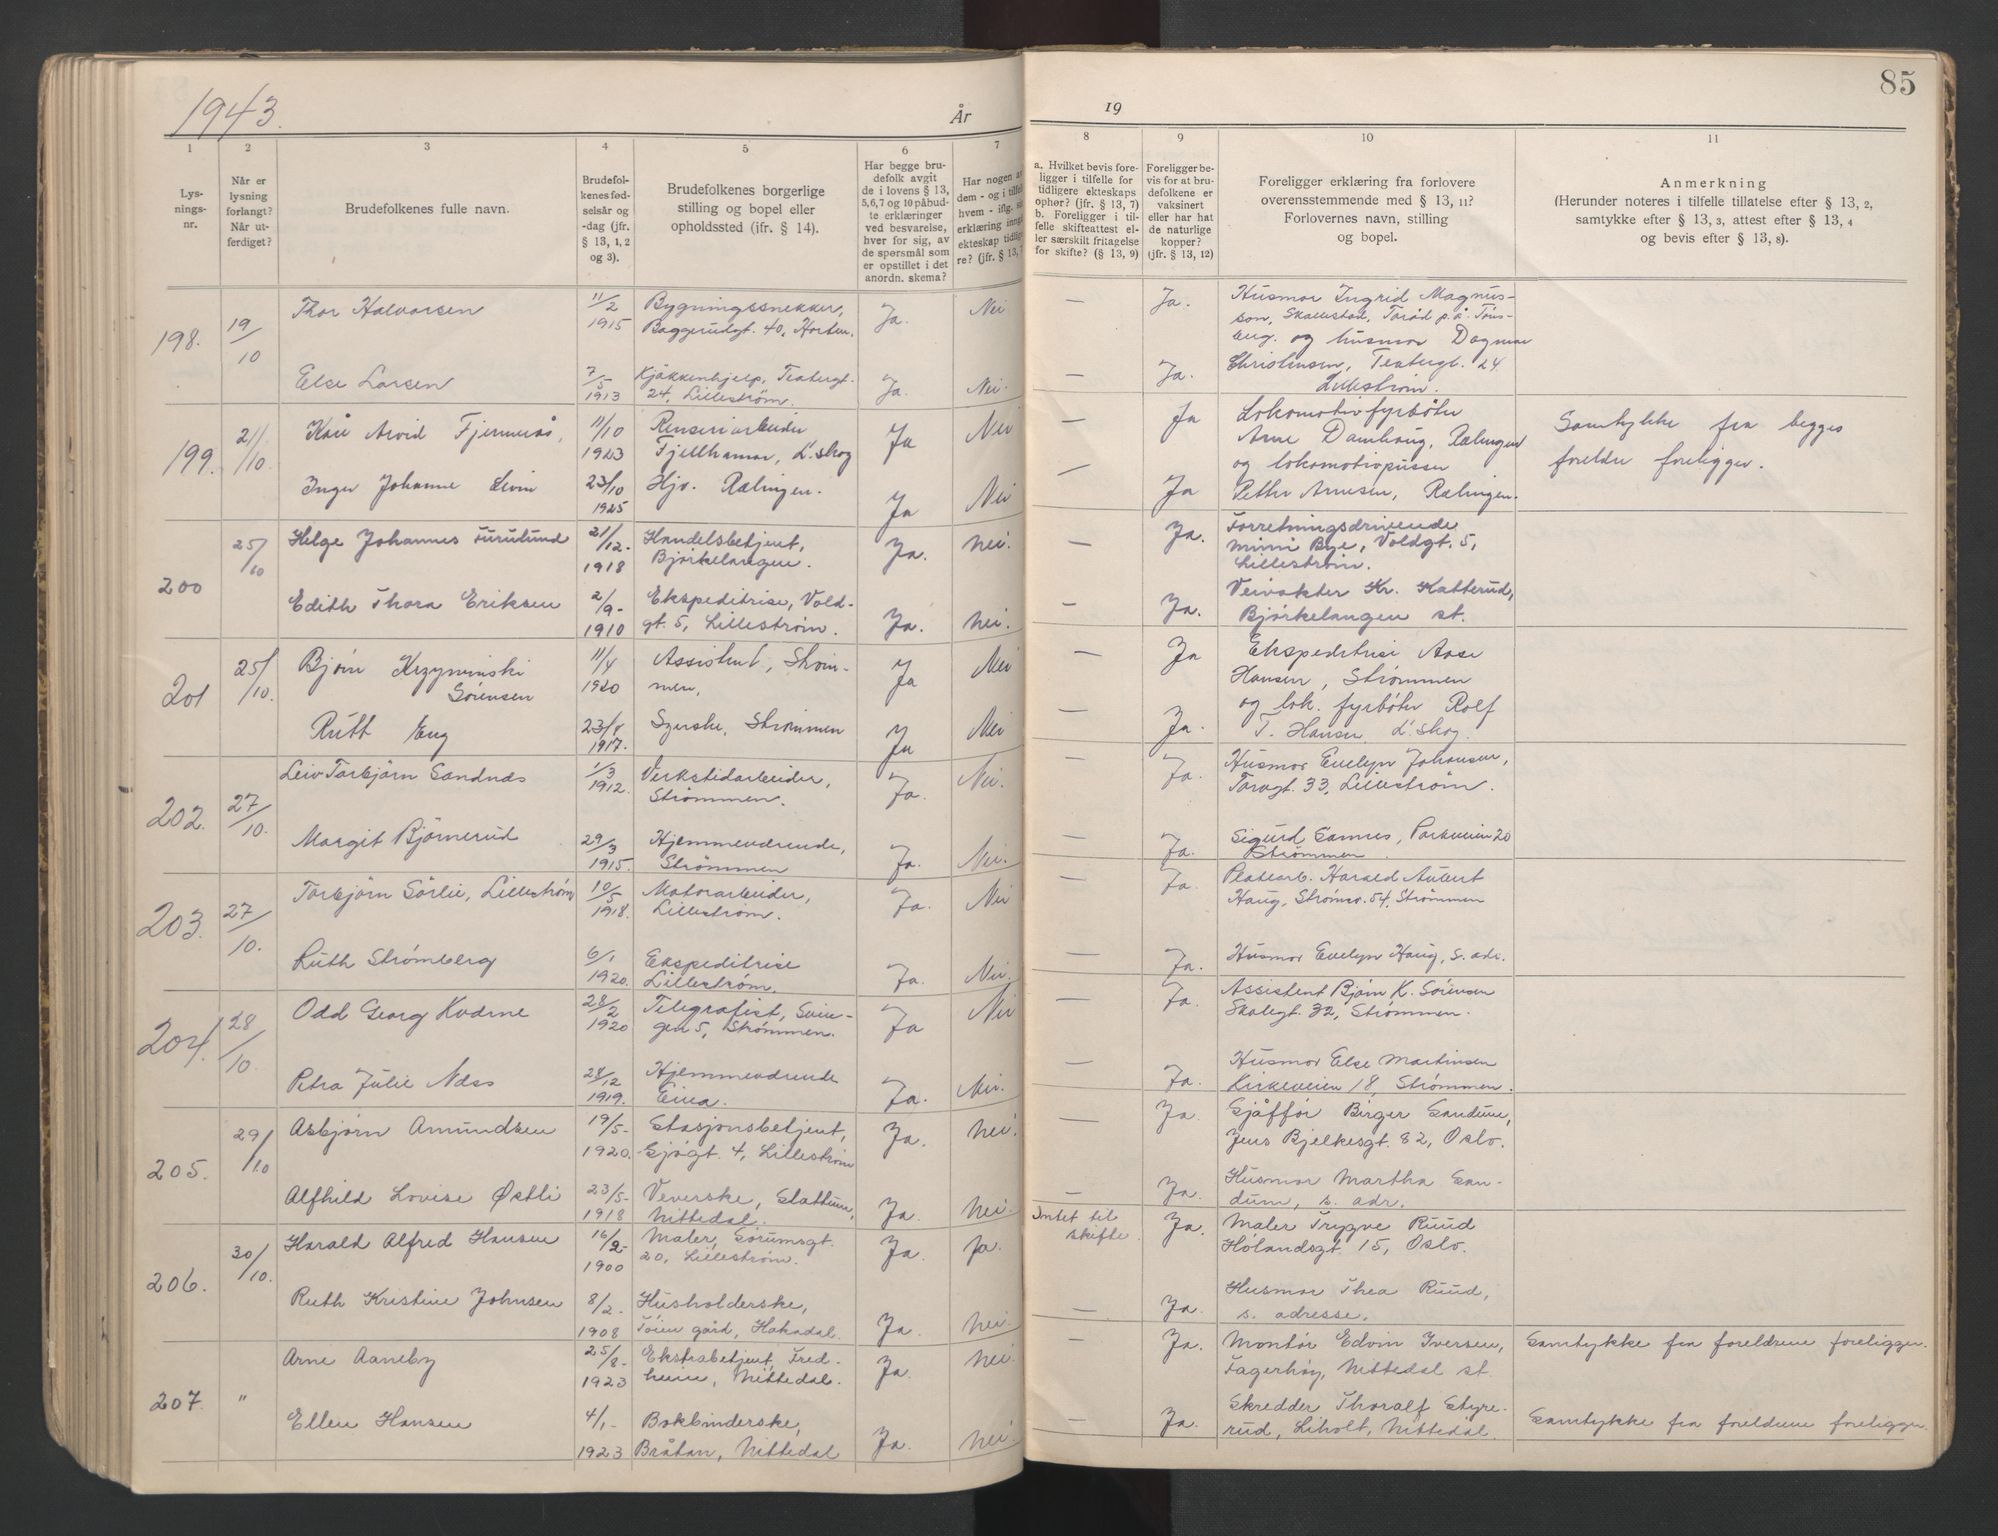 1943.
År
19
85
1
2
3
4
5
6
7
8
9
10
11
Lys-
nings-
nr.
Når er
lysning
forlangt?
Når ut-
ferdiget?
Brudefolkenes fulle navn.
Brudefol-
kenes fød-
selsår og
-dag (jfr.
§ 13, 1, 2
og 3).
Brudefolkenes borgerlige
stilling og bopel eller
opholdssted (jfr. § 14).
Har begge bru-
defolk avgit
de i lovens § 13,
5,6,7 og 10 påbud-
te erklæringer
ved besvarelse,
hver for sig, av
de spørsmål som
er opstillet i det
anordn. skema?
Har nogen av
dem - og i tilfel
hvem - iflg. si
erklæring inng
ekteskap tidlig
re? (jfr. § 13, 7
a. Hvilket bevis fore-
ligger i tilfelle for
tidligere ekteskaps
ophør? (jfr. § 13, 7)
b. Foreligger i til-
felle skifteattest el-
ler særskilt fritagelse
for skifte? (§ 13, 9)
Foreligger be-
vis for at bru-
defolkene er
vaksinert
eller har hat
de naturlige
kopper?
(jfr. § 13, 12)
Foreligger erklæring fra forlovere
overensstemmende med § 13, 11?
Forlovernes navn, stilling
og bopel.
Anmerkning
(Herunder noteres i tilfelle tillatelse efter § 13, 2,
samtykke efter § 13, 3, attest efter § 13, 4
og bevis efter § 13, 8).
198.
19/10
Thor Halvorsen
11/2
1915
Bygningssnekker,
Baggerudgt. 40, Horten.
Ja.
Nei
—
Ja.
Husmor Ingrid Magnus-
son, Skallestad, Torød p.å. Tøns-
berg. og husmor Dagmar
Else Larsen
7/5
1913
Kjøkkenhjelp, Teatergt.
24, Lillestrøm.
Ja.
Nei.
—
Ja.
Christensen, Teatergt. 24
Lillestrøm.
199.
21/10.
Kåre Arvid Fjermerås,
11/10
1923
Renseriarbeider
Fjellhamar, L.skog
Ja
Nei
—
Ja
Lokomotivfyrbøter
Arne Damhaug, Rælingen
og lokomotivpusser
Samtykke fra begges
foreldre foreligger.
Inger Johanne Sevin
23/10
1925
Hjv. Rælingen.
Ja
Nei
—
Ja
Petter Arnesen, Rælingen.
200
25/10
Helge Johannes Furulund
21/12-
1918
Handelsbetjent,
Bjørkelangen.
Ja.
nei.
—
Ja.
Forretningsdrivende
Mimi Bye, Voldgt. 5,
Lillestrøm.
Edith Thora Eriksen
2/9-
1910
Ekspeditrise, Vold-
gt. 5, Lillestrøm.
Ja.
nei.
—
Ja.
Veivokter Kr. Katterud,
Bjørkelangen st.
201
25/10.
Bjørn Krzyminski
Sørensen
11/4
1920
Assistent, Strøm-
men.
Ja
Nei
—
Ja
Ekspeditrise Aase
Hansen, Strømmen
Rutt Eng
23/8
1917.
Syerske, Strømmen
Ja
Nei
—
Ja.
og lok. fyrbøter Rolf
T. Hansen L.skog.
202.
27/10.
Leiv Torbjørn Sandnæs
1/3
1912.
Verkstedarbeider,
Strømmen.
Ja.
Nei.
—
Ja.
Husmor Evelyn Johansen,
Torvgt. 33, Lillestrøm.
Margit Bjørnerud
29/3
1915.
Hjemmeværende,
Strømmen
Ja.
Nei.
—
Ja.
Sigurd Sannes, Parkveien 20
Strømmen.
203.
27/10.
Torbjørn Sørlie, Lillestrøm
10/5
1918.
Motorarbeider,
Lillestrøm.
Ja.
Nei
—
Ja.
Platearb. Harald Aubert
Haug, Strømsv. 54, Strømmen
Ruth Strømberg
6/1
1920.
Ekspeditrise
Lillestrøm.
Ja.
Nei.
—
Ja.
Husmor Evelyn Haug, s. adr.
204.
28/10.
Odd Georg Kværne
28/2
1920
Telegrafist, Svin-
gen 5, Strømmen.
Ja
Nei
—
Ja.
Assistent Bjørn K. Sørensen
Skolegt. 32, Strømmen.
Petra Julie Næss
28/12
1919.
Hjemmeværende
Eina.
Ja.
Nei.
—
Ja.
Husmor Else Martinsen
Kirkeveien 18, Strømmen.
205.
29/10
Asbjørn Amundsen
19/5-
1920.
Stasjonsbetjent,
Sjøgt. 4, Lillestrøm
Ja.
nei.
—
Ja.
Sjåffør Birger Sandum,
Jens Bjelkesgt. 82, Oslo.
Alfhild Lovise Østli
23/5-
1918
Veverske, Slattum,
Nittedal.
Ja.
nei.
—
Ja.
Husmor Martha San-
dum, s. adr.
206.
30/10.
Harald Alfred Hansen
16/2-
1900
Maler, Sørumsgt.
20, Lillestrøm.
Ja.
ja.
Intet til
skifte.
Ja.
Maler Trygve Ruud
Hølandsgt. 15, Oslo.
Ruth Kristine Johnsen
8/2-
1908
Husholderske,
Tøien gård, Hakadal.
Ja.
nei.
—
Ja.
Husmor Thea Ruud,
s. adresse.
207.
"
Arne Aaneby
25/8-
1923
Ekstrabetjent, Fred-
heim, Nittedal.
Ja.
nei.
—
Ja.
Montør Edvin Iversen,
Fagerhøy, Nittedal st.
Samtykke fra foreldrene foreligger.
Ellen Hansen
4/1-
1923
Bokbinderske,
Bråtan, Nittedal
Ja.
nei.
—
Ja.
Skredder Thoralf Styre-
rud, Liholt, Nittedal.
Samtykke fra foreldrene foreligger.